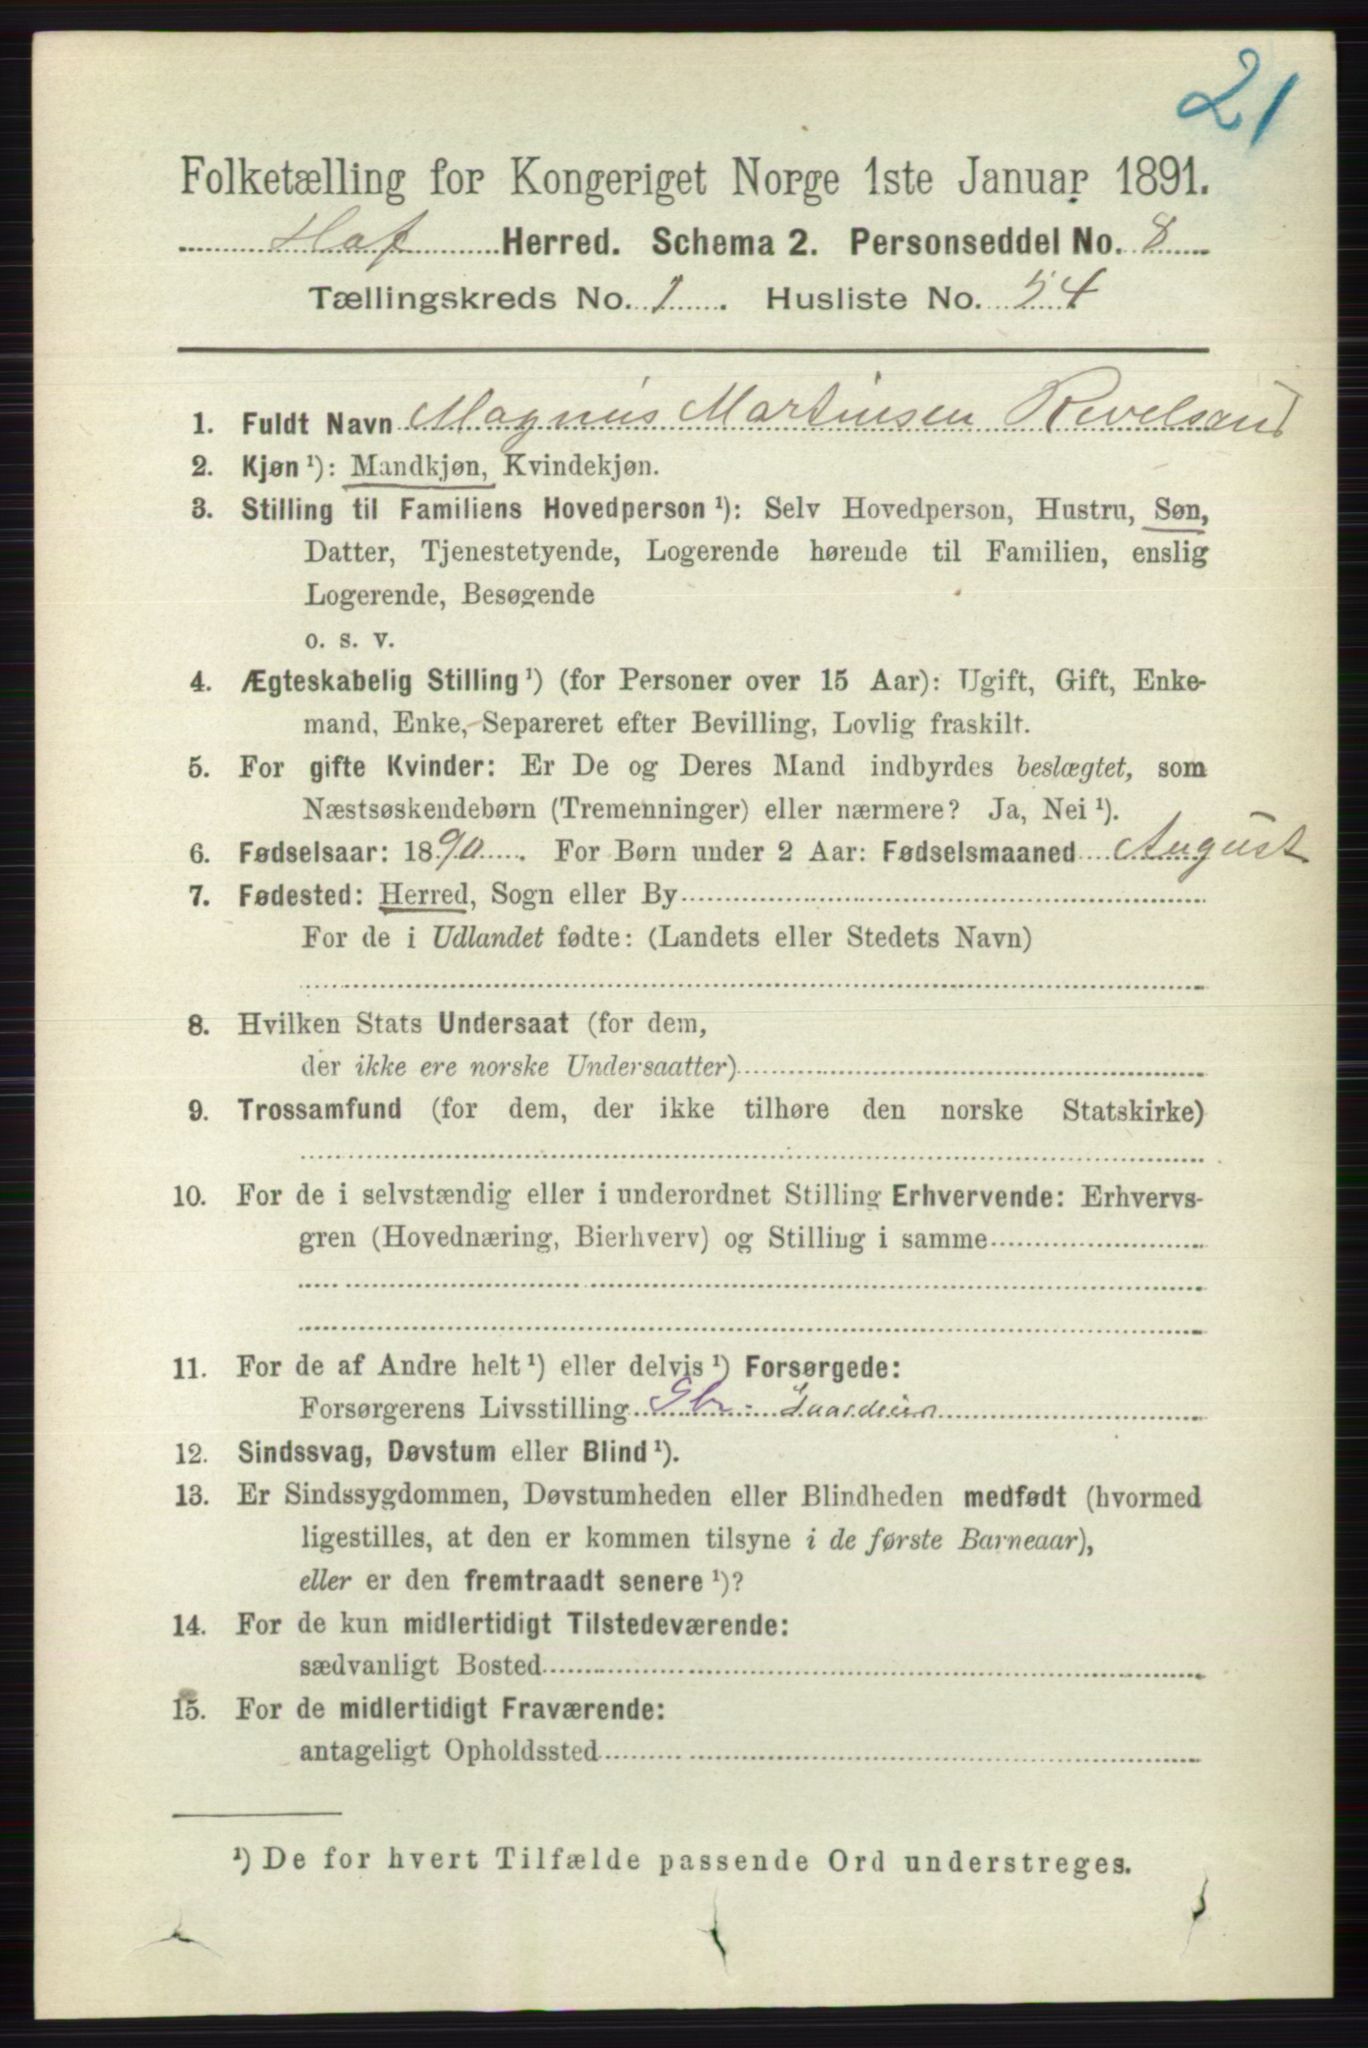 21
Folketælling for Kongeriget Norge 1ste Januar 1891.
Hof Herred. Schema 2. Personseddel No. 8
Tællingskreds No. 1. Husliste No. 54
1. Fuldt Navn Magnus Martinsen Revelsrud
2. Kjøn ¹): Mandkjøn, Kvindekjøn.
3. Stilling til Familiens Hovedperson ¹): Selv Hovedperson, Hustru, Søn,
Datter, Tjenestetyende, Logerende hørende til Familien, enslig
Logerende, Besøgende
o. s. v.
4. Ægteskabelig Stilling ¹) (for Personer over 15 Aar): Ugift, Gift, Enke-
mand, Enke, Separeret efter Bevilling, Lovlig fraskilt.
5. For gifte Kvinder: Er De og Deres Mand indbyrdes beslægtet, som
Næstsøskendebørn (Tremenninger) eller nærmere? Ja, Nei ¹).
6. Fødselsaar: 1890. For Børn under 2 Aar: Fødselsmaaned August
7. Fødested: Herred, Sogn eller By
For de i Udlandet fødte: (Landets eller Stedets Navn)
8. Hvilken Stats Undersaat (for dem,
der ikke ere norske Undersaatter)
9. Trossamfund (for dem, der ikke tilhøre den norske Statskirke)
10. For de i selvstændig eller i underordnet Stilling Erhvervende: Erhvervs-
gren (Hovednæring, Bierhverv) og Stilling i samme
11. For de af Andre helt ¹) eller delvis ¹) Forsørgede:
Forsørgerens Livsstilling Gbr. Gaardeier
12. Sindssvag, Døvstum eller Blind ¹).
13. Er Sindssygdommen, Døvstumheden eller Blindheden medfødt (hvormed
ligestilles, at den er kommen tilsyne i de første Barneaar),
eller er den fremtraadt senere ¹)?
14. For de kun midlertidigt Tilstedeværende:
sædvanligt Bosted
15. For de midlertidigt Fraværende:
antageligt Opholdssted
¹) De for hvert Tilfælde passende Ord understreges.